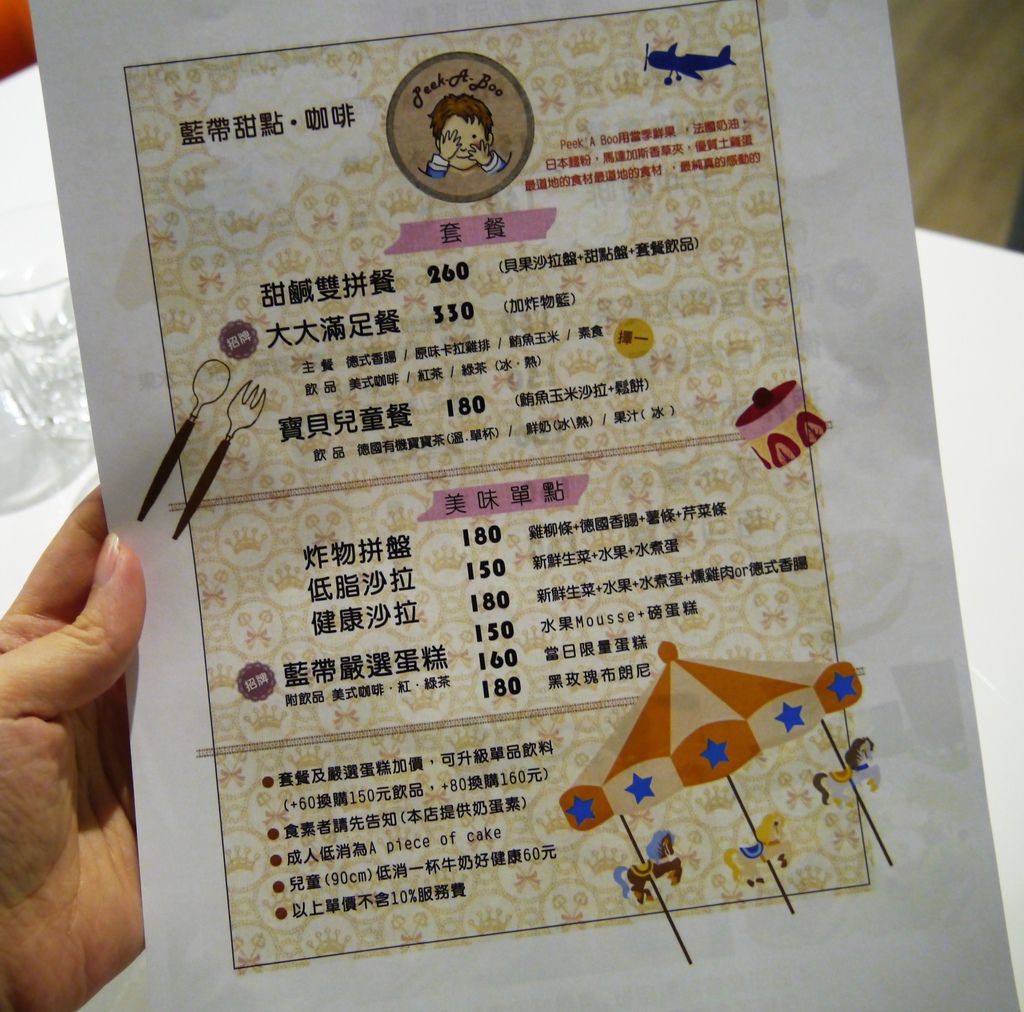 藍帶甜點・咖啡
Peek-A-Boo
Peek'A Boo用當季鮮果，法國奶油，
日本麵粉，馬達加斯香草夾，優質土雞蛋
最道地的食材最道地的食材，最純真的感動的
套餐
甜鹹雙拼餐 260 (貝果沙拉盤+甜點盤+套餐飲品)
招牌 大大滿足餐 330 (加炸物籃)
主餐 德式香腸 / 原味卡拉雞排 / 鮪魚玉米 / 素食 擇一
飲品 美式咖啡 / 紅茶 / 綠茶 (冰・熱)
寶貝兒童餐 180 (鮪魚玉米沙拉+鬆餅)
飲品 德國有機寶寶茶(溫.單杯) / 鮮奶(冰\熱) / 果汁( 冰 )
美味單點
炸物拼盤 180 雞柳條+德國香腸+薯條+芹菜條
低脂沙拉 150 新鮮生菜+水果+水煮蛋
健康沙拉 180 新鮮生菜+水果+水煮蛋+燻雞肉or德式香腸
150 水果Mousse+磅蛋糕
招牌 藍帶嚴選蛋糕 160 當日限量蛋糕
附飲品 美式咖啡・紅・綠茶 180 黑玫瑰布朗尼
●套餐及嚴選蛋糕加價，可升級單品飲料
(+60換購150元飲品，+80換購160元)
●食素者請先告知(本店提供奶蛋素)
●成人低消為A piece of cake
●兒童(90cm)低消一杯牛奶好健康60元
●以上單價不含10%服務費